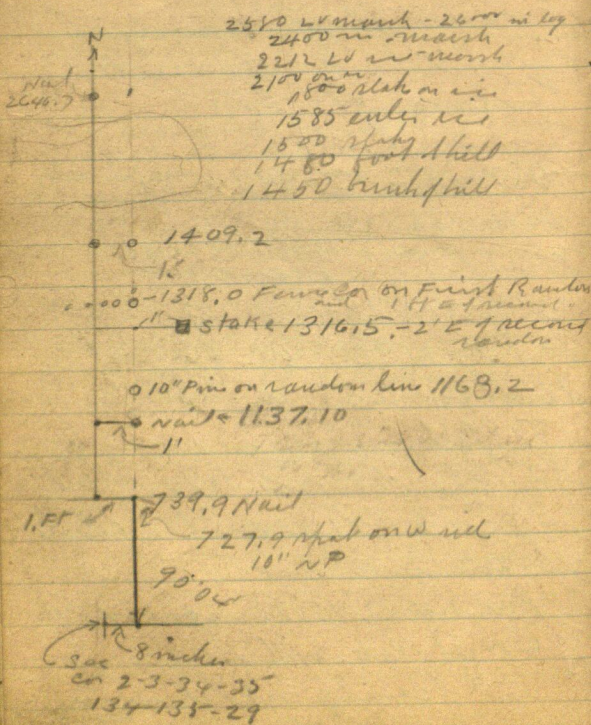 2550 Lv marsh - 2600 in log
2400 in marsh
2212 Lv marsh
2100 on
1800 stak on ice
1585 enter ice
1500
1480 foot of hill
1450 brink of hill
N
Nail
2640.7
1409.2
1'
1318.0 Fence Cor on First Random
and 1 ft E of second
1" stake 1316.5 - 2' E of second
random
10" Pine on random line 1168.2
Nail - 1137.10
1'
739.9 Nail
1. FT
727.9 spot on W side
10" NP
90° 04'
8 inches
Sec
Cor 2-3-34-35
134-135-29